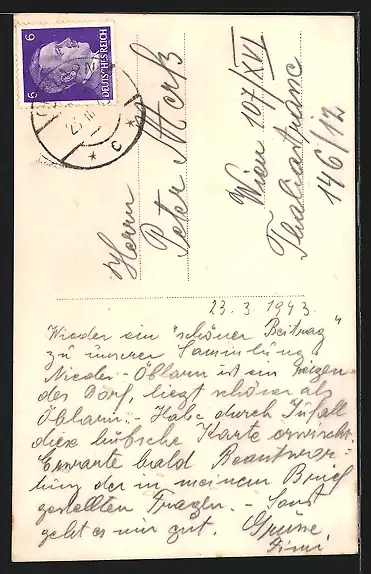 6
6
DEUTSCHES REICH
c
Herrn
Peter
Wien 107/XVI
Thaliastrasse
146/12
23. 3. 1943.
Wieder ein "schöner Beitrag"
zu unserer Sammlung.
Nieder-Öblarn ist ein reizen-
des Dorf, liegt schöner als
Öblarn. - Habe durch Zufall
diese hübsche Karte erwischt.
Erwarte bald Beantwor-
tung der in meinem Brief
gestellten Fragen. - Sonst
geht es mir gut. Grüsse,